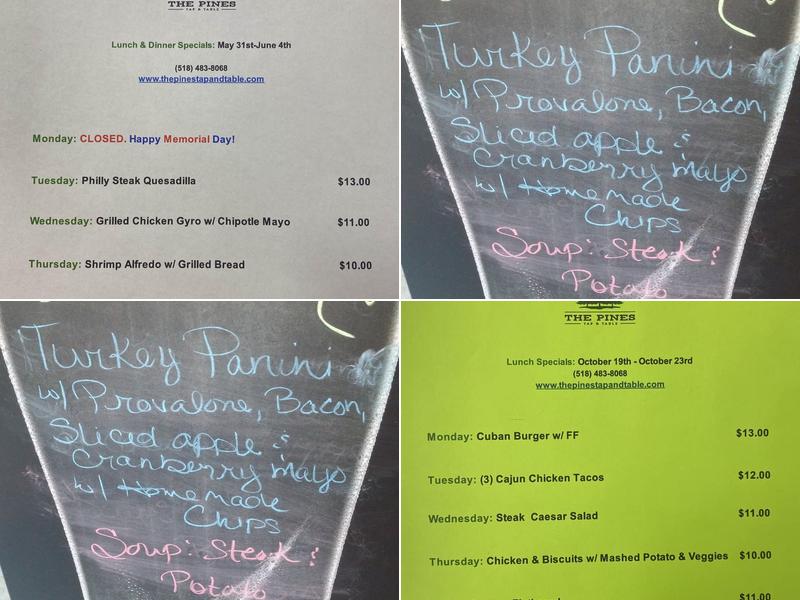 THE PINES
TAP & TABLE
Lunch & Dinner Specials: May 31st-June 4th
(518) 483-8068
www.thepinestapandtable.com
Monday: CLOSED. Happy Memorial Day!
Tuesday: Philly Steak Quesadilla $13.00
Wednesday: Grilled Chicken Gyro w/ Chipotle Mayo $11.00
Thursday: Shrimp Alfredo w/ Grilled Bread $10.00
Turkey Panini
w/ Provalone, Bacon,
Sliced apple &
Cranberry mayo
w/ Homemade
Chips
Soup: Steak &
Potato
Turkey Panini
w/ Provalone, Bacon,
Sliced apple &
Cranberry mayo
w/ Homemade
Chips
Soup: Steak &
Potato
THE PINES
TAP & TABLE
Lunch Specials: October 19th - October 23rd
(518) 483-8068
www.thepinestapandtable.com
Monday: Cuban Burger w/ FF $13.00
Tuesday: (3) Cajun Chicken Tacos $12.00
Wednesday: Steak Caesar Salad $11.00
Thursday: Chicken & Biscuits w/ Mashed Potato & Veggies $10.00
$11.00